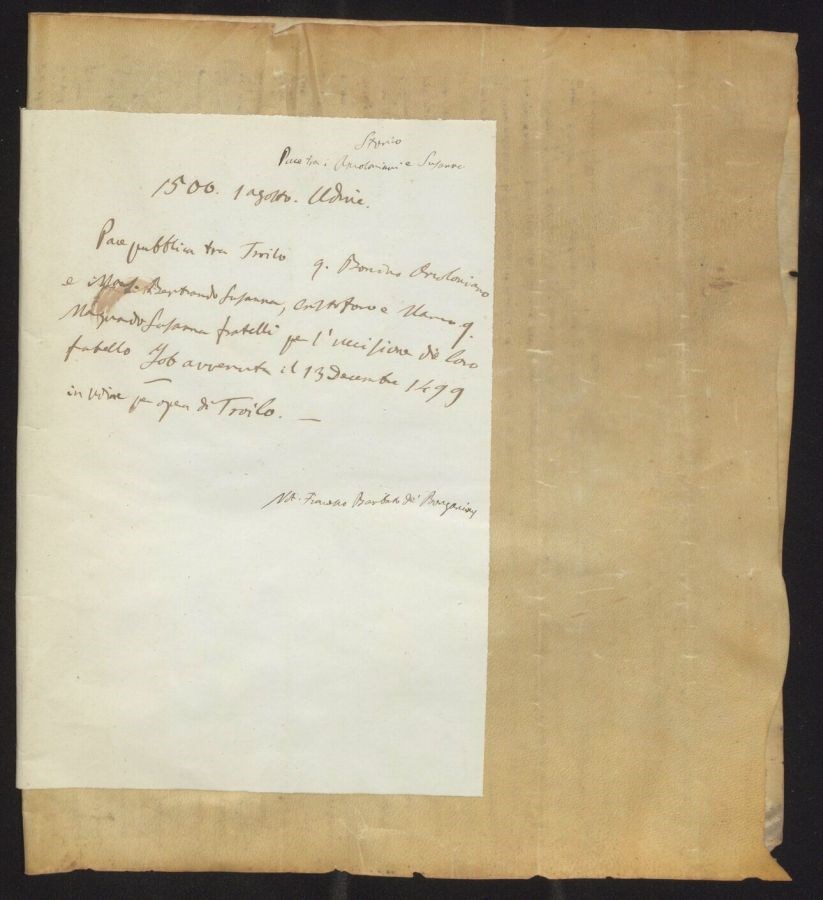 Storico
Pace tra i Orsoloniani e Susanna
1500. 1 agosto. Udine.
Pace pubblica tra Troilo q. Bonino Orsoloniano
e Bertrando Susanna, Cristoforo e Marco q.
Susanna fratelli per l'uccisione di loro
fratello Job avvenuta il 13 Decembre 1499
in Udine per opera di Troilo. —
Not. Francesco Barbato de'